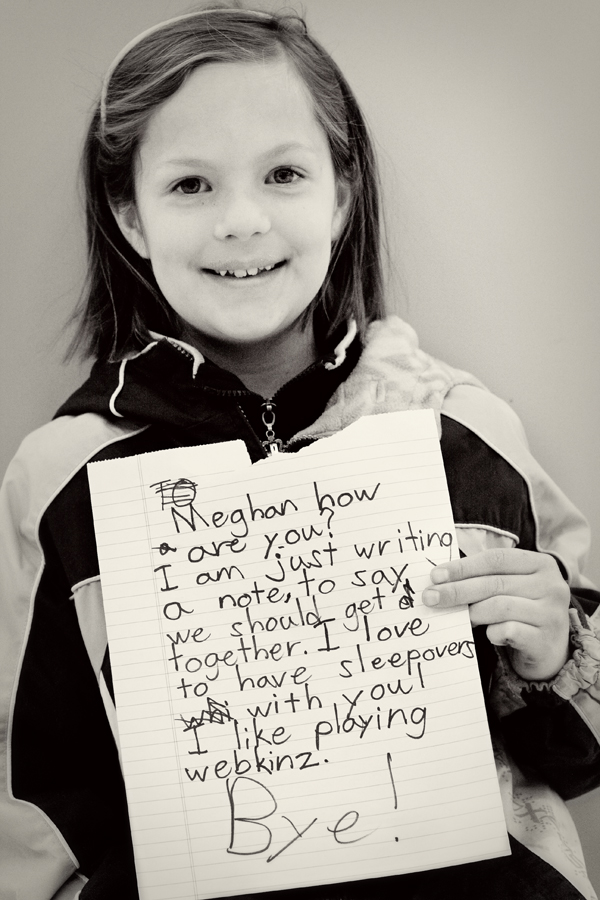 Meghan how
are you?
I am just writing
a note, to say,
we should get
together. I love
to have sleepovers
with you!
I like playing
webkinz.
Bye!